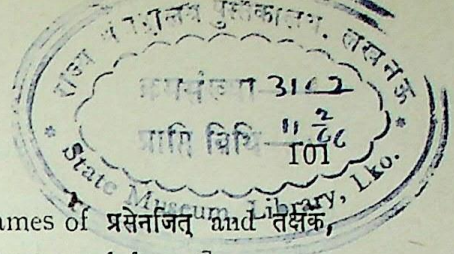 राज्य संग्रहालय पुस्तकालय, लखनऊ
क्रमसंख्या 3142
प्राप्ति तिथि
101
* State Museum Library, Lko. *
ames of प्रसेनजित् and तक्षक,